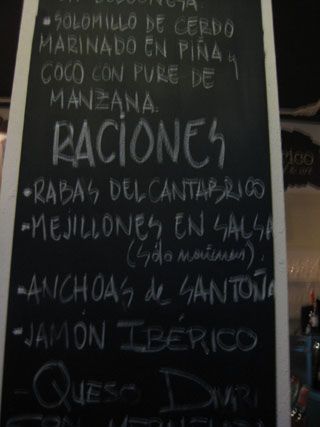 -SOLOMILLO DE CERDO
MARINADO EN PIÑA y
COCO CON PURE DE
MANZANA
RACIONES
-RABAS DEL CANTABRICO
-MEJILLONES EN SALSA
(Sólo mañanas).
-ANCHOAS de SANTOÑA
-JAMÓN IBÉRICO
-QUESO DIVIRI